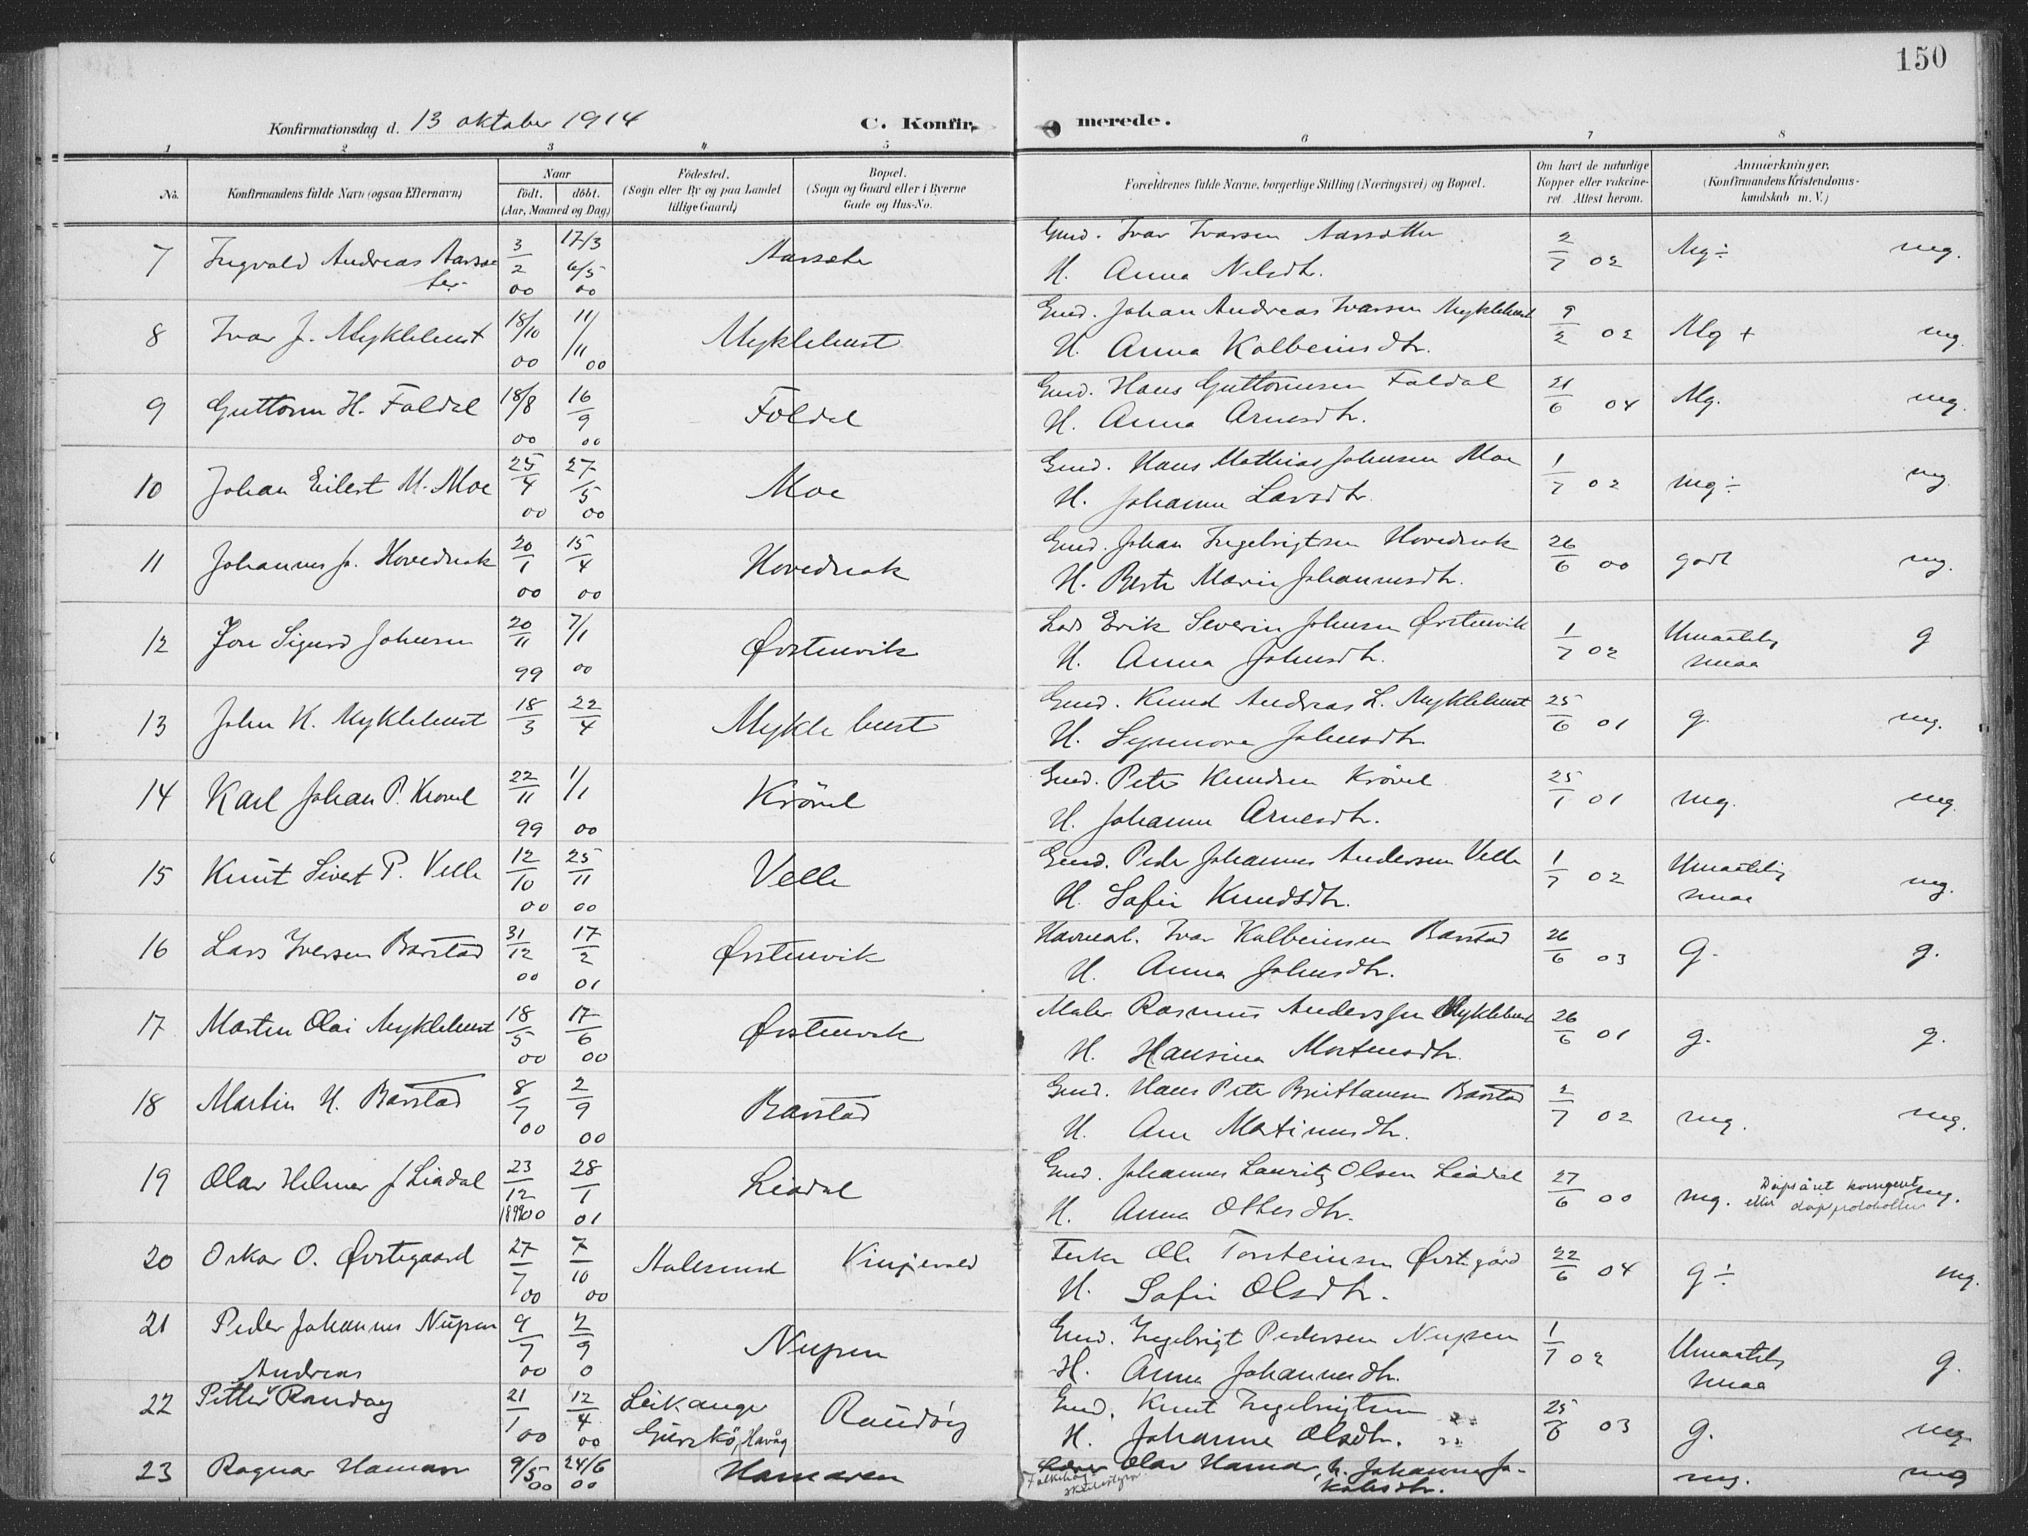 150
Konfirmationsdag d. 13 oktober 1914 C. Konfir- merede.
1 2 3 4 5 6 7 8
No. Konfirmandens fulde Navn (ogsaa Efternavn)
Naar
født. døbt.
(Aar, Maaned og Dag)
Fødested.
(Sogn eller By og paa Landet
tillige Gaard)
Bopæl.
(Sogn og Gaard eller i Byerne
Gade og Hus-No.
Forældrenes fulde Navne, borgerlige Stilling (Næringsvei) og Bopæl.
Om havt de naturlige
Kopper eller vakcine-
ret. Attest herom.
Anmærkninger.
(Konfirmandens Kristendoms-
kundskab m. V.)
7 Ingvald Andreas Aarsæ 3/2 00 17/3 6/5 00 Aarsæte Gmd. Ivar Ivarsen Aarsæter 2/7 02 Mg ÷ mg.
ter H. Anna Nilsdtr.
8 Ivar J. Myklebust 18/10 00 11/11 00 Myklebust Gmd. Johan Andreas Ivarsen Myklebust 9/2 02 Mg + mg.
H. Anna Kolbeinsdtr.
9 Guttorm H. Foldal 18/8 00 16/9 00 Foldal Gmd. Hans Guttormsen Foldal 21/6 04 Mg. mg.
H. Anna Arnesdtr.
10 Johan Eilert M. Moe 25/4 00 27/5 00 Moe Gmd. Hans Mathias Johnsen Moe 1/7 02 mg ÷ mg.
H. Johanne Larsdtr.
11 Johannes Jo. Hovednak 20/1 00 15/4 00 Hovednak Gmd. Johan Ingebrigtsen Hovednak 26/6 00 godt mg.
H. Berte Marie Johannesdtr.
12 Jon Sigurd Johnsen 20/11 99 7/1 00 Ørstenvik Lods Erik Severin Johnsen Ørstenvik 1/7 02 Umaatelig g
H. Anna Johnsdtr. smaa
13 John K. Myklebust 18/3 22/4 Myklebust Gmd. Knud Andreas L. Myklebust 25/6 01 g. mg.
H. Synnove Johnsdtr.
14 Karl Johan P. Krøvel 22/11 99 1/1 00 Krøvel Gmd. Peter Knudsen Krøvel 25/1 01 mg. mg.
H. Johanne Arnesdtr.
15 Knut Sivert P. Velle 12/10 00 25/11 00 Velle Gmd. Peder Johannes Andersen Velle 1/7 02 Umaatelig mg.
H. Sofie Knudsdtr. smaa
16 Lars Iversen Barstad 31/12 00 17/2 01 Ørstenvik Ivar Kolbeinsen Barstad 26/6 03 g. g.
H. Anna Johnsdtr.
17 Martin Olai Myklebust 18/5 00 17/6 00 Ørstenvik Maler Rasmus Anderssen Myklebust 26/6 01 g. g.
H. Hansina Mortensdtr.
18 Martin H. Barstad 8/7 00 2/9 00 Barstad Gmd. Hans Peter Barstad 2/7 02 mg. mg.
H. Ane Martinusdtr.
19 Olav Helmer J Liadal 23/12 1899 00 28/1 01 Liadal Gmd. Johannes Lauritz Olsen Liadal 27/6 00 mg. Dåpsåret korrigert mg.
H. Anna Ottersdtr. etter dåpsprotokollen
20 Oskar O. Øvstegaard 27/7 00 7/10 00 Aalesund Vinjevold Ole Torsteinsen Øvstegård 22/6 04 g ÷ mg.
H. Sofie Olsdtr.
21 Peder Johannes Nupen 9/7 00 2/9 0 Nupen Gmd. Ingebrigt Pedersen Nupen 1/7 02 Umaatelig g.
H. Anna Johannesdtr. smaa
Andreas
22 Petter Randøy 21/1 00 12/4 00 Leikanger Randøy Gmd. Knut Ingebrigtsen " 25/6 03 g. mg.
Gurskø, Havåg H. Johanne Olsdtr. "
23 Ragnar Hamar 9/5 00 24/6 00 Hamaren Olav Hamar, h. Johanne Ja- mg. mg
Folkehøg- kobsdtr.
skulestyrar